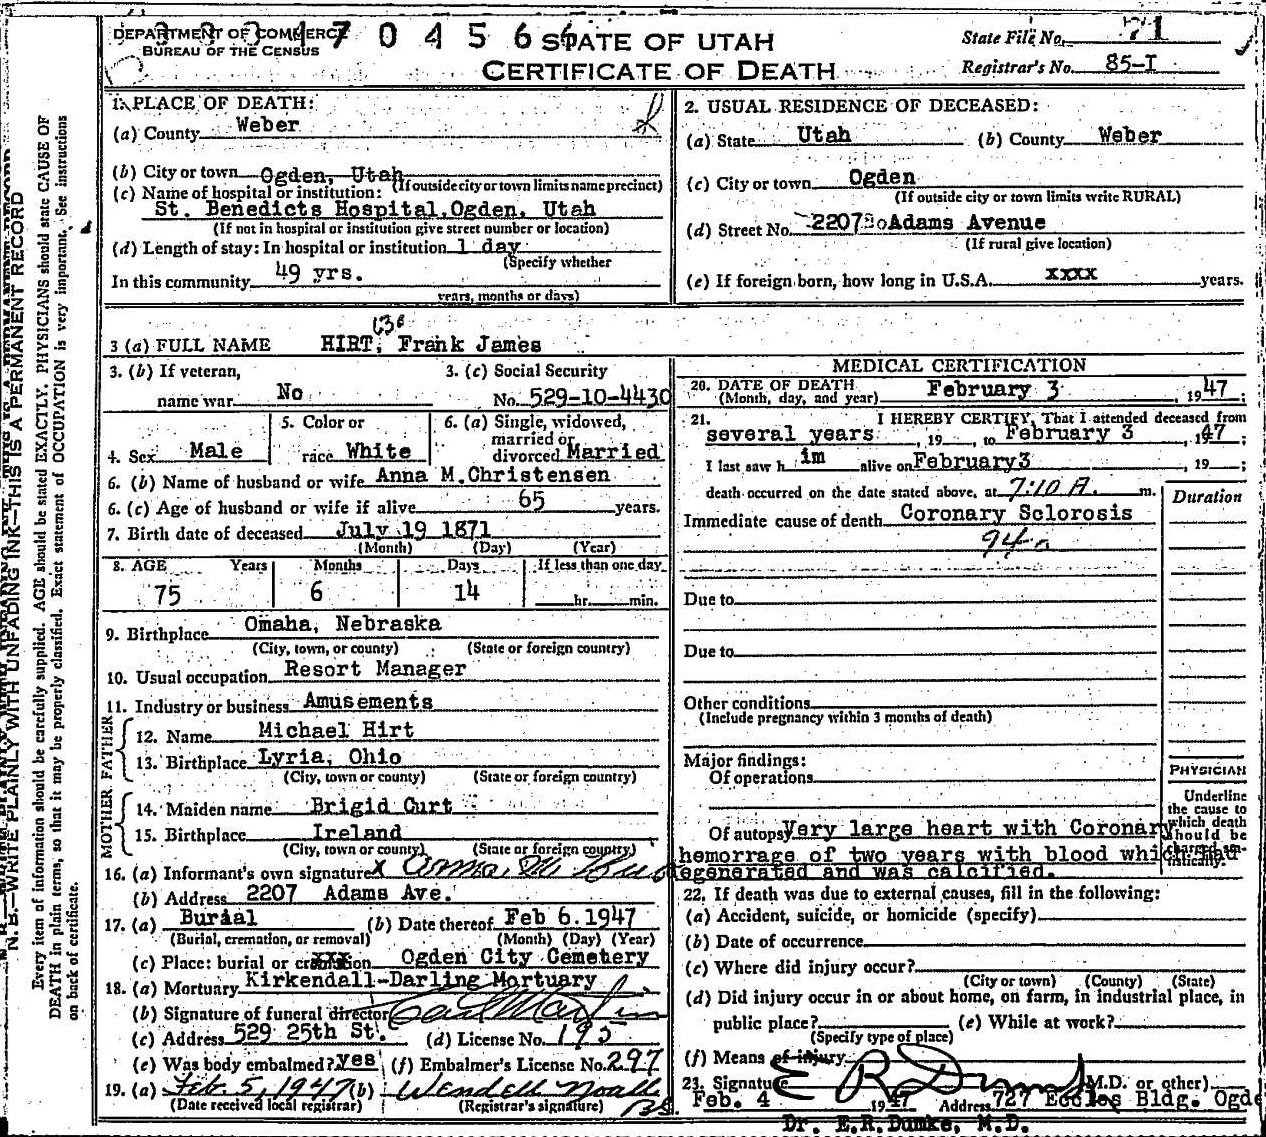 DEPARTMENT OF COMMERCE
BUREAU OF THE CENSUS
7 0 4 5 6 6
STATE OF UTAH
CERTIFICATE OF DEATH
State File No. 71
Registrar's No. 85-I
1. PLACE OF DEATH:
(a) County Weber
(b) City or town Ogden, Utah
(If outside city or town limits name precinct)
(c) Name of hospital or institution:
St. Benedicts Hospital, Ogden, Utah
(If not in hospital or institution give street number or location)
(d) Length of stay: In hospital or institution 1 day
(Specify whether
In this community 49 yrs.
years, months or days)
2. USUAL RESIDENCE OF DECEASED:
(a) State Utah (b) County Weber
(c) City or town Ogden
(If outside city or town limits write RURAL)
(d) Street No. 2207 Adams Avenue
(If rural give location)
(e) If foreign born, how long in U.S.A. xxxx years.
3 (a) FULL NAME HIRT, Frank James
3. (b) If veteran,
name war No
3. (c) Social Security
No. 529-10-4430
4. Sex Male
5. Color or
race White
6. (a) Single, widowed,
married or
divorced Married
6. (b) Name of husband or wife Anna M.Christensen
6. (c) Age of husband or wife if alive 65 years.
7. Birth date of deceased July 19 1871
(Month) (Day) (Year)
8. AGE Years Months Days If less than one day
75 6 14 hr. min.
9. Birthplace Omaha, Nebraska
(City, town, or county) (State or foreign country)
10. Usual occupation Resort Manager
11. Industry or business Amusements
FATHER
12. Name Michael Hirt
13. Birthplace Lyria, Ohio
(City, town or county) (State or foreign country)
MOTHER
14. Maiden name Brigid Curt
15. Birthplace Ireland
(City, town or county) (State or foreign country)
16. (a) Informant's own signature x Anna M.
(b) Address 2207 Adams Ave.
17. (a) Burial (b) Date thereof Feb 6.1947
(Burial, cremation, or removal) (Month) (Day) (Year)
(c) Place: burial or xxx Ogden City Cemetery
18. (a) Mortuary Kirkendall-Darling Mortuary
(b) Signature of funeral director
(c) Address 529 25th St. (d) License No. 195
(e) Was body embalmed? yes (f) Embalmer's License No. 297
19. (a) Feb. 5, 1947 (b) Wendell Noall
(Date received local registrar) (Registrar's signature)
MEDICAL CERTIFICATION
20. DATE OF DEATH February 3, 1947
(Month, day, and year)
21. I HEREBY CERTIFY, That I attended deceased from
several years, 19, to February 3, 1947;
I last saw him alive on February3, 19;
death occurred on the date stated above, at 7:10 A. m.
Duration
Immediate cause of death Coronary Sclorosis
94a
Due to
Due to
Other conditions
(Include pregnancy within 3 months of death)
Major findings:
Of operations
PHYSICIAN
Underline
the cause to
which death
should be
charged sta-
tistically.
Of autopsy Very large heart with Coronary
hemorrage of two years with blood which had
degenerated and was calcified.
22. If death was due to external causes, fill in the following:
(a) Accident, suicide, or homicide (specify)
(b) Date of occurrence
(c) Where did injury occur?
(City or town) (County) (State)
(d) Did injury occur in or about home, on farm, in industrial place, in
public place? (e) While at work?
(Specify type of place)
(f) Means of injury
23. Signature E R Dumke M.D. or other)
Feb. 4 1947 Address 727 Eccles Bldg. Ogde
Dr. E.R.Dumke, M.D.
N.B.—WRITE PLAINLY WITH UNFADING INK—THIS IS A PERMANENT RECORD
Every item of information should be carefully supplied. AGE should be stated EXACTLY. PHYSICIANS should state CAUSE OF
DEATH in plain terms, so that it may be properly classified. Exact statement of OCCUPATION is very important. See instructions
on back of certificate.